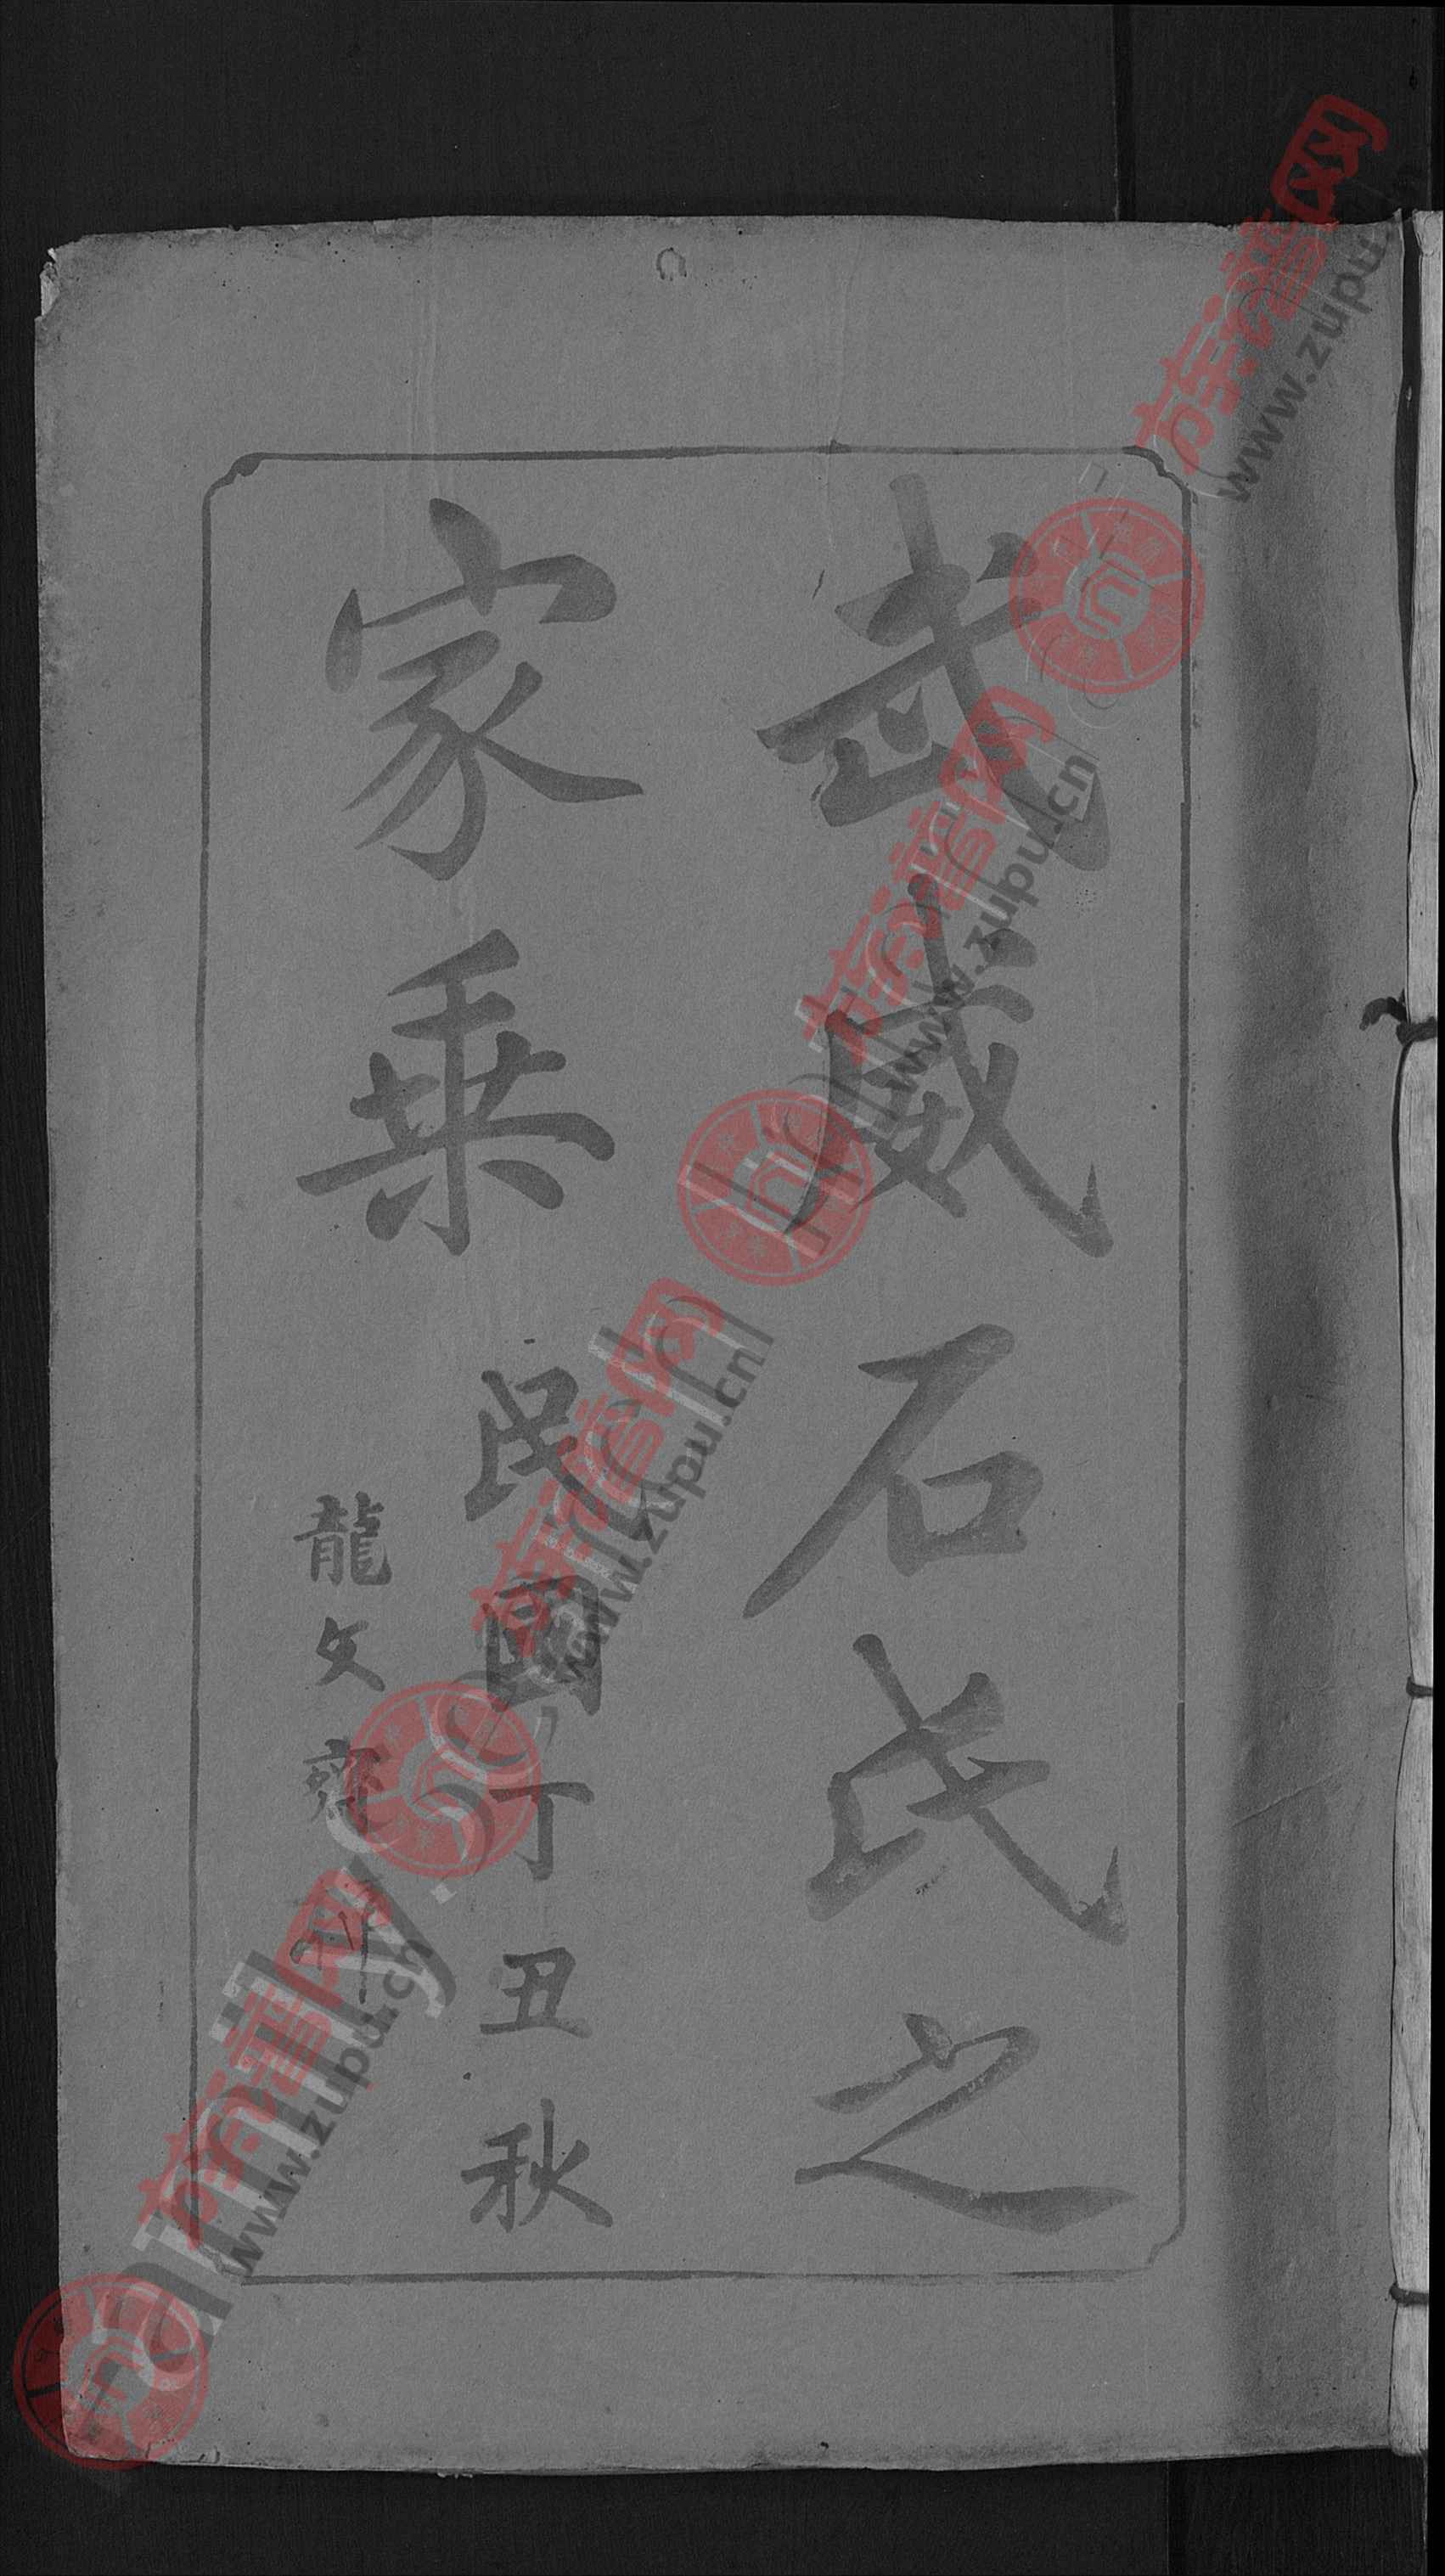 武威石氏之
家乘
民國丁丑秋
龍文齋
族譜网
www.zupu.cn
族譜网
www.zupu.cn
族譜网
www.zupu.cn
族譜网
www.zupu.cn